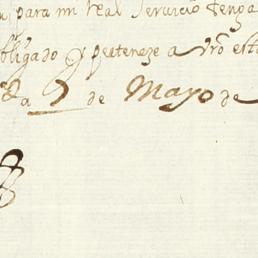 para mi real servicio tenga
obligado y perteneze a vro est
a 7 de Mayo de